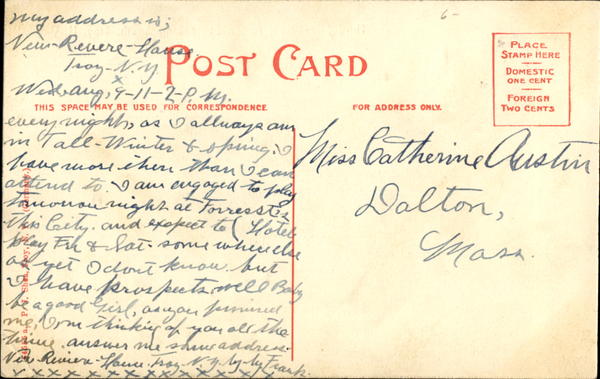 my address is;
New-Revere-House
Troy-N.Y
x
Wed, Aug, 9-11-2-P.M.
POST CARD
THIS SPACE MAY BE USED FOR CORRESPONDENCE.
FOR ADDRESS ONLY.
PLACE
STAMP HERE
DOMESTIC
ONE CENT
FOREIGN
TWO CENTS
every night, as I allways am
in Fall-Winter & Spring. I
have more then than I can
attend to. I am engaged to play
tomorrow night at
this City. and expect to (Hotel
play Fri & Sat. some where else
as yet I dont know. but
I have prospects. well Baby
be a good Girl, as you promised
me, I'm thinking of you all the
time. answer me same address.
New Revere-House. Troy-N.Y. by-by Frank.
x x x x x x x x x x x x x x x x x x x
Miss Catherine Austin
Dalton,
Mass.